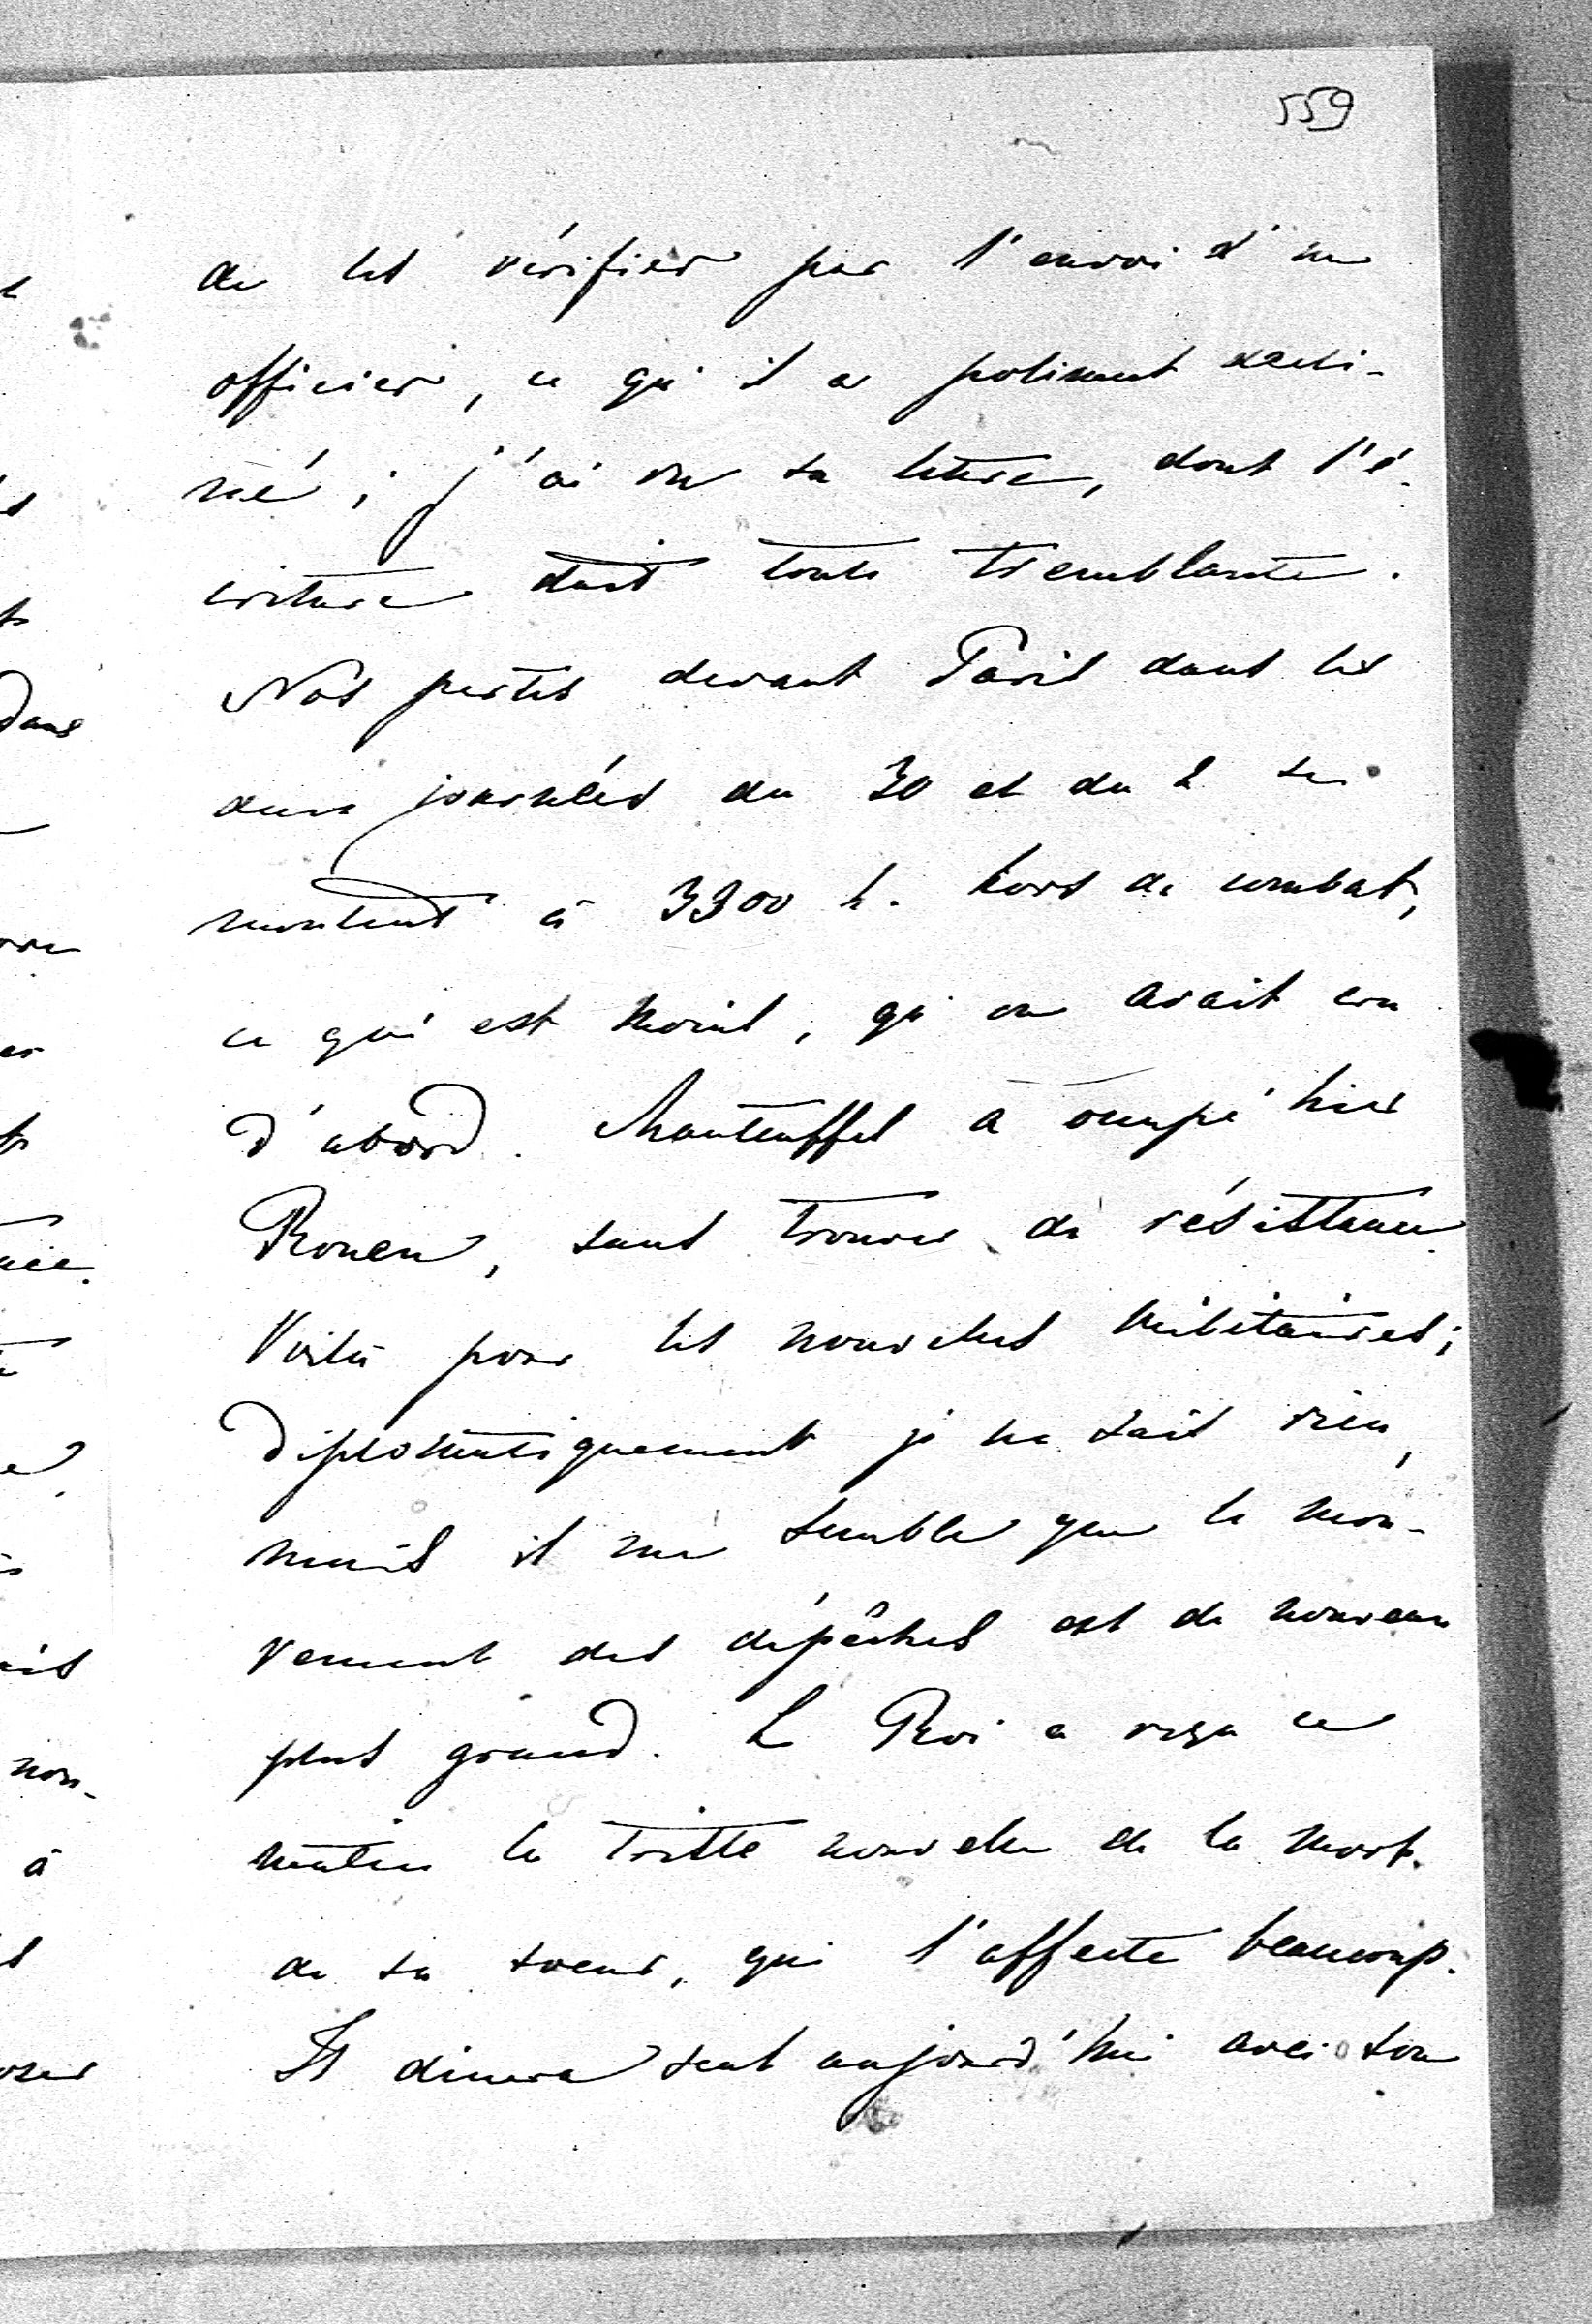 559
de les vérifier par l'envoi d'un
officier, ce qu'il a poliment décli-
né ; j'ai vu sa lettre, dont l'é-
criture était toute tremblante.
Nos pertes devant Paris dans les
deux journées du 30 et du 2 se
montent à 3300 h. hors de combat,
ce qui est moins, qu'on avait cru
d'abord. Manteuffel a occupé hier
Rouen, sans trouver de résistance.
Voilà pour les nouvelles militaires;
diplomatiquement je ne sais rien,
mais il me semble que le mou-
vement des dépêches est de nouveau
plus grand. Le Roi a reçu ce
matin la triste nouvelle de la mort
de sa soeur, qui l'affecte beaucoup.
Il dinera seul aujourd'hui avec son